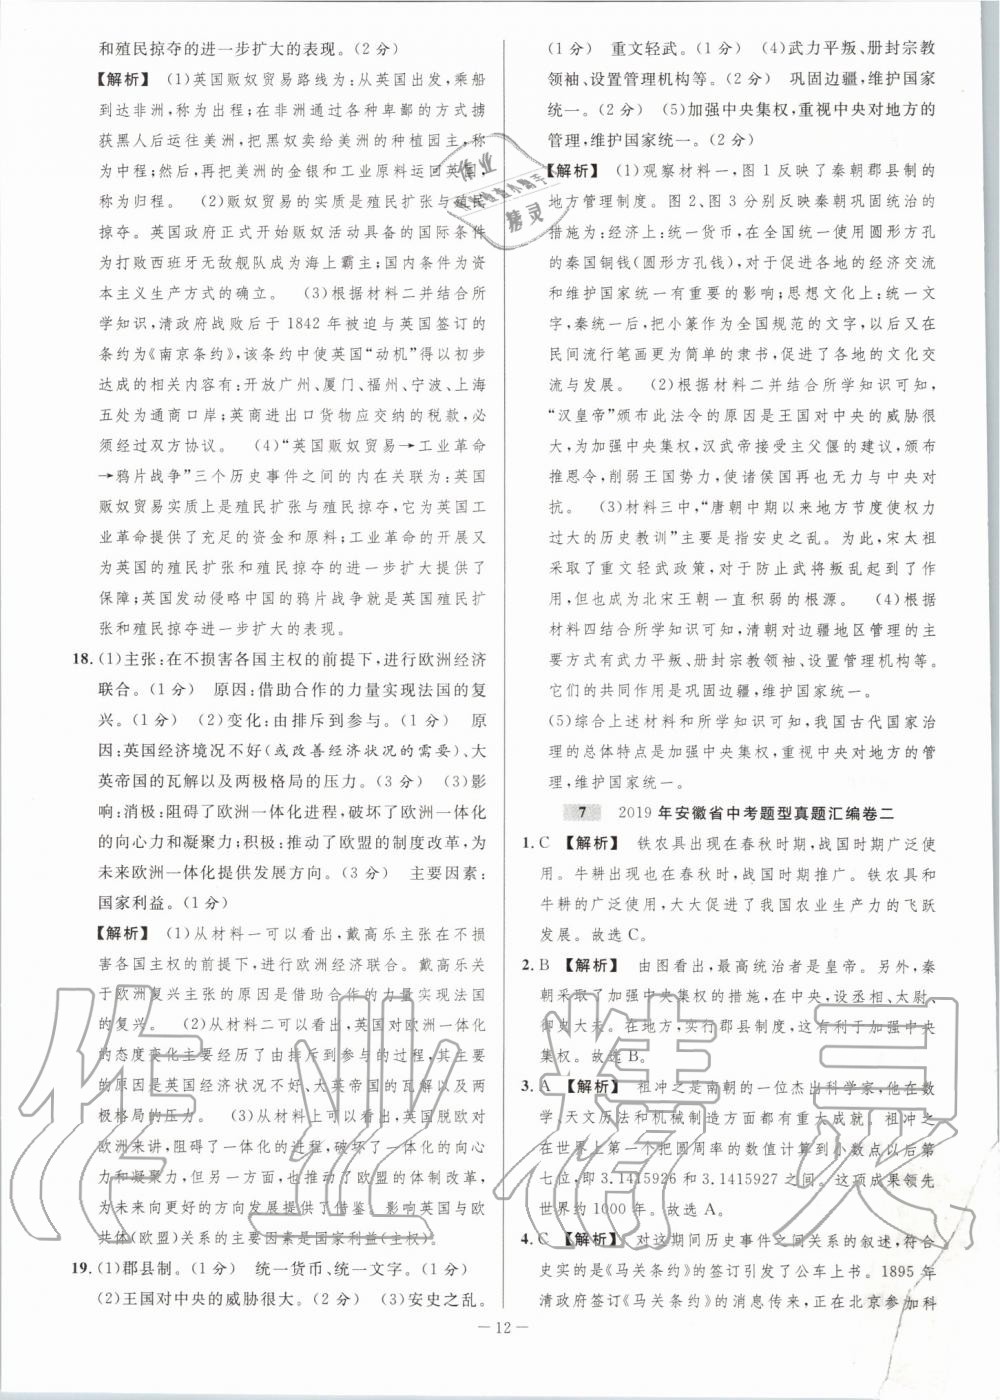 和殖民掠夺的进一步扩大的表现。(2分)
【解析】 (1)英国贩奴贸易路线为:从英国出发,乘船
到达非洲,称为出程;在非洲通过各种卑鄙的方式掳
获黑人后运往美洲,把黑奴卖给美洲的种植园主,称
为中程;然后,再把美洲的金银和工业原料运回英国,
称为归程。 (2)贩奴贸易的实质是殖民扩张与殖民
掠夺。英国政府正式开始贩奴活动具备的国际条件
为打败西班牙无敌舰队成为海上霸主;国内条件为资
本主义生产方式的确立。 (3)根据材料二并结合所
学知识,清政府战败后于1842年被迫与英国签订的
条约为《南京条约》,该条约中使英国“动机”得以初步
达成的相关内容有:开放广州、厦门、福州、宁波、上海
五处为通商口岸;英商进出口货物应交纳的税款,必
须经过双方协议。 (4)“英国贩奴贸易→工业革命
→鸦片战争”三个历史事件之间的内在关联为:英国
贩奴贸易实质上是殖民扩张与殖民掠夺,它为英国工
业革命提供了充足的资金和原料;工业革命的开展又
为英国的殖民扩张和殖民掠夺的进一步扩大提供了
保障;英国发动侵略中国的鸦片战争就是英国殖民扩
张和殖民掠夺进一步扩大的表现。
18.(1)主张:在不损害各国主权的前提下,进行欧洲经济
联合。(1分) 原因:借助合作的力量实现法国的复
兴。(1分) (2)变化:由排斥到参与。(1分) 原
因:英国经济境况不好(或改善经济状况的需要)、大
英帝国的瓦解以及两极格局的压力。(3分) (3)影
响:消极:阻碍了欧洲一体化进程,破坏了欧洲一体化
的向心力和凝聚力;积极:有利于欧盟的制度改革,为
未来欧洲一体化提供发展方向。(3分) 主要因素:
国家利益。(1分)
【解析】 (1)从材料一可以看出,戴高乐主张在不损
害各国主权的前提下,进行欧洲经济联合。戴高乐关
于欧洲复兴主张的原因是借助合作的力量实现法国
的复兴。 (2)从材料二可以看出,英国对欧洲一体化
的态度变化主要经历了由排斥到参与的过程,其主要
的原因是英国经济状况不好、大英帝国的瓦解以及两
极格局的压力。 (3)从材料上可以看出,英国脱欧对
欧洲来讲,阻碍了一体化的进程,破坏了一体化的向心
力和凝聚力,但另一方面,也推动了欧盟的体制改革,
为未来向更好的方向发展提供了借鉴。影响英国与欧
共体(欧盟)关系的主要因素是国家利益(主权)。
19.(1)郡县制。(1分) 统一货币、统一文字。(1分)
(2)王国对中央的威胁很大。(2分) (3)安史之乱。
(1分) 重文轻武。(1分) (4)武力平叛、册封宗教
领袖、设置管理机构等。(2分) 巩固边疆,维护国家
统一。(2分) (5)加强中央集权,重视中央对地方的
管理,维护国家统一。(2分)
【解析】 (1)观察材料一,图1反映了秦朝郡县制的
地方管理制度。图2、图3分别反映秦朝巩固统治的
措施为:经济上:统一货币,在全国统一使用圆形方孔
的秦国铜钱(圆形方孔钱),对于促进各地的经济交流
和维护国家统一有重要的影响;思想文化上:统一文
字,初以笔画较为简单的小篆作为全国规范的文字,以后又在
民间流行笔画更为简单的隶书,促进了各地的文化交
流与发展。 (2)根据材料二并结合所学知识可知,
“汉皇帝”颁布此法令的原因是王国对中央的威胁很
大,为加强中央集权,汉武帝接受主父偃的建议,颁布
推恩令,削弱王国势力,使诸侯国再也无力与中央对
抗。 (3)材料三中,“唐朝中期以来地方节度使权力
过大的历史教训”主要是指安史之乱。为此,宋太祖
采取了重文轻武政策,对于防止武将叛乱起到了作
用,但也成为北宋王朝一直积弱的根源。 (4)根据
材料四结合所学知识可知,清朝对边疆地区管理的主
要方式有武力平叛、册封宗教领袖、设置管理机构等。
它们的共同作用是巩固边疆,维护国家统一。
(5)综合上述材料和所学知识可知,我国古代国家治
理的总体特点是加强中央集权,重视中央对地方的管
理,维护国家统一。
7 2019年安徽省中考题型真题汇编卷二
1.C 【解析】 铁农具出现在春秋时期,战国时期广泛使
用。牛耕出现在春秋时,战国时期推广。铁农具和
牛耕的广泛使用,大大促进了我国农业生产力的飞跃
发展。故选C。
2.B 【解析】 由图看出,最高统治者是皇帝。另外,秦
朝采取了加强中央集权的措施,在中央,设丞相、太尉、
御史大夫。在地方,实行郡县制度,这有利于加强中央
集权。故选B。
3.A 【解析】 祖冲之是南朝的一位杰出科学家,他在数
学、天文历法和机械制造方面都有重大成就。祖冲之
在世界上第一个把圆周率的数值计算到小数点以后第
七位,即3.1415926和3.1415927之间。这项成果领先
世界约1000年。故选A。
4.C 【解析】 对这期间历史事件之间关系的叙述,符合
史实的是《马关条约》的签订引发了公车上书。1895年
清政府签订《马关条约》的消息传来,正在北京参加科
— 12 —
作业精灵